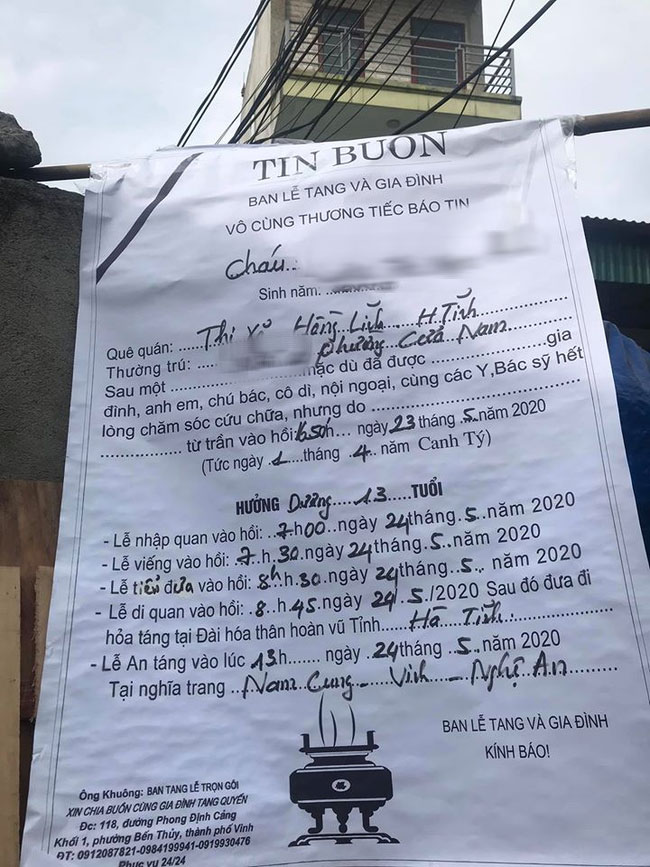 TIN BUỒN
BAN LỄ TANG VÀ GIA ĐÌNH
VÔ CÙNG THƯƠNG TIẾC BÁO TIN
Cháu..
Sinh năm:
Quê quán: Thị Xã Hồng Lĩnh H. Tĩnh
Thường trú: Phường Cửa Nam
Sau một mặc dù đã được gia
đình, anh em, chú bác, cô dì, nội ngoại, cùng các Y,Bác sỹ hết
lòng chăm sóc cứu chữa, nhưng do
từ trần vào hồi: ngày 23 tháng 5 năm 2020
(Tức ngày 1 tháng 4 năm Canh Tý)
HƯỞNG Dương 13 TUỔI
- Lễ nhập quan vào hồi: 7h00 ngày 24 tháng 5 năm 2020
- Lễ viếng vào hồi: 7h30 ngày 24 tháng 5 năm 2020
- Lễ tiễn đưa vào hồi: 8h h 30 ngày 24 tháng 5 năm 2020
- Lễ di quan vào hồi: 8h45 ngày 24/5/2020 Sau đó đưa đi
hỏa táng tại Đài hóa thân hoàn vũ Tỉnh Hà Tĩnh
- Lễ An táng vào lúc 13h ngày 24 tháng 5 năm 2020
Tại nghĩa trang Nam Cung - Vinh - Nghệ An
BAN LỄ TANG VÀ GIA ĐÌNH
KÍNH BÁO!
Ông Khuông: BAN TANG LỄ TRỌN GÓI
XIN CHIA BUỒN CÙNG GIA ĐÌNH TANG QUYẾN
Đc: 118, đường Phong Định Cảng
Khối 1, phường Bến Thủy, thành phố Vinh
ĐT: 0912087821-0984199941-0919930476
Phục vụ 24/24